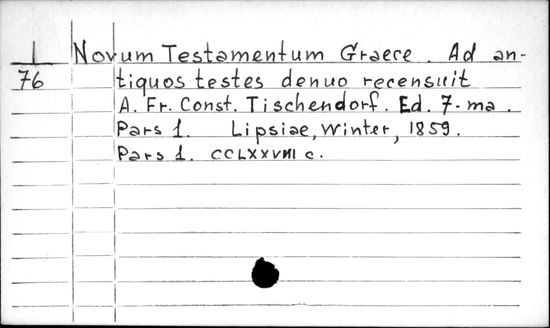 I Novum Testamentum Graece. Ad an-
76 tiquos testes denuo recensuit
A. Fr. Const. Tischendorf. Ed. 7-ma.
Pars 1. Lipsiae, Winter, 1859.
Pars 1. CCLXXVIII c.